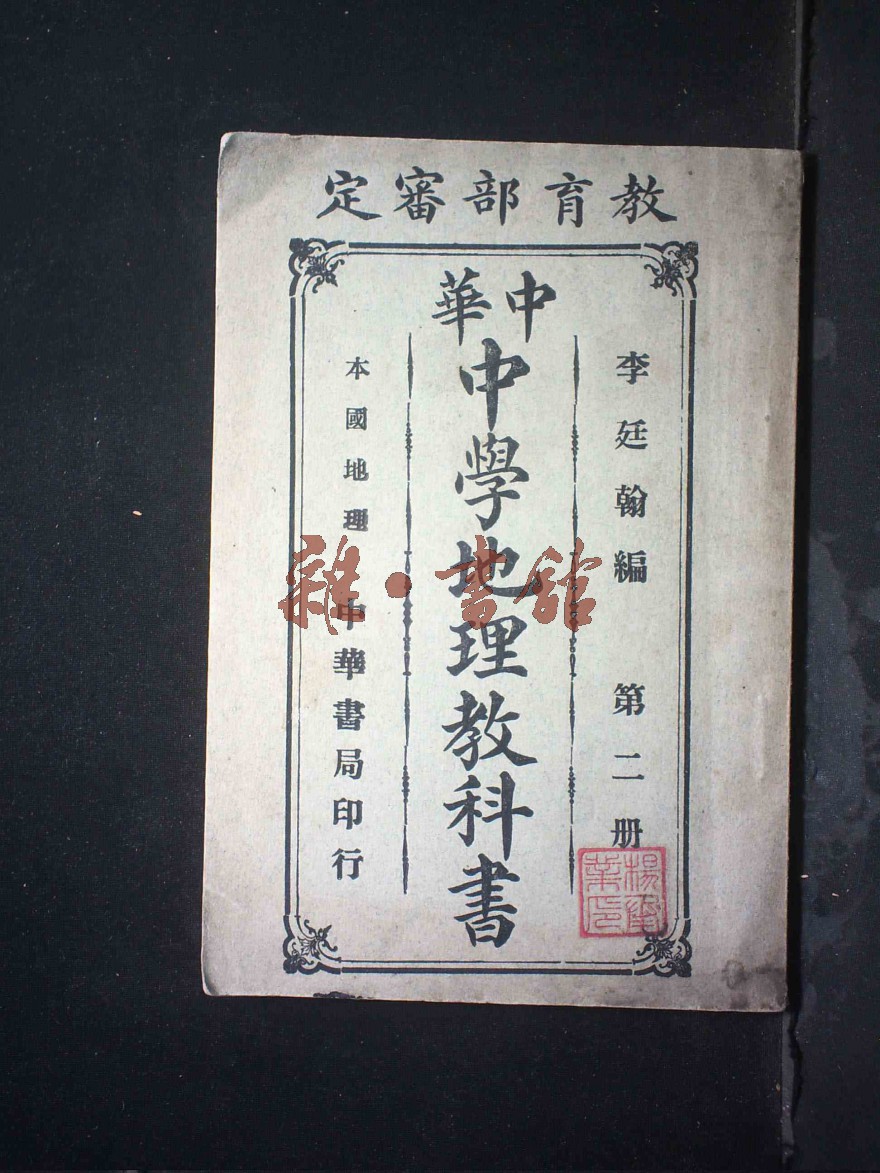 教育部審定
李廷翰編 第二册
中華
中學地理教科書
本國地理 中華書局印行
雜·書館